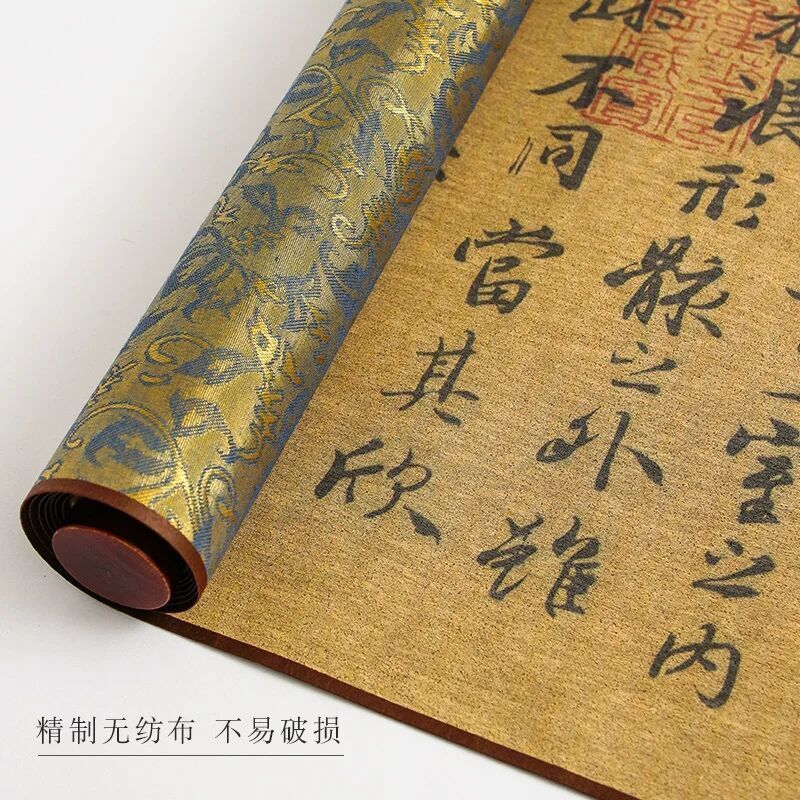 室之內
浪形骸之外雖
不同當其欣
精制无纺布 不易破损